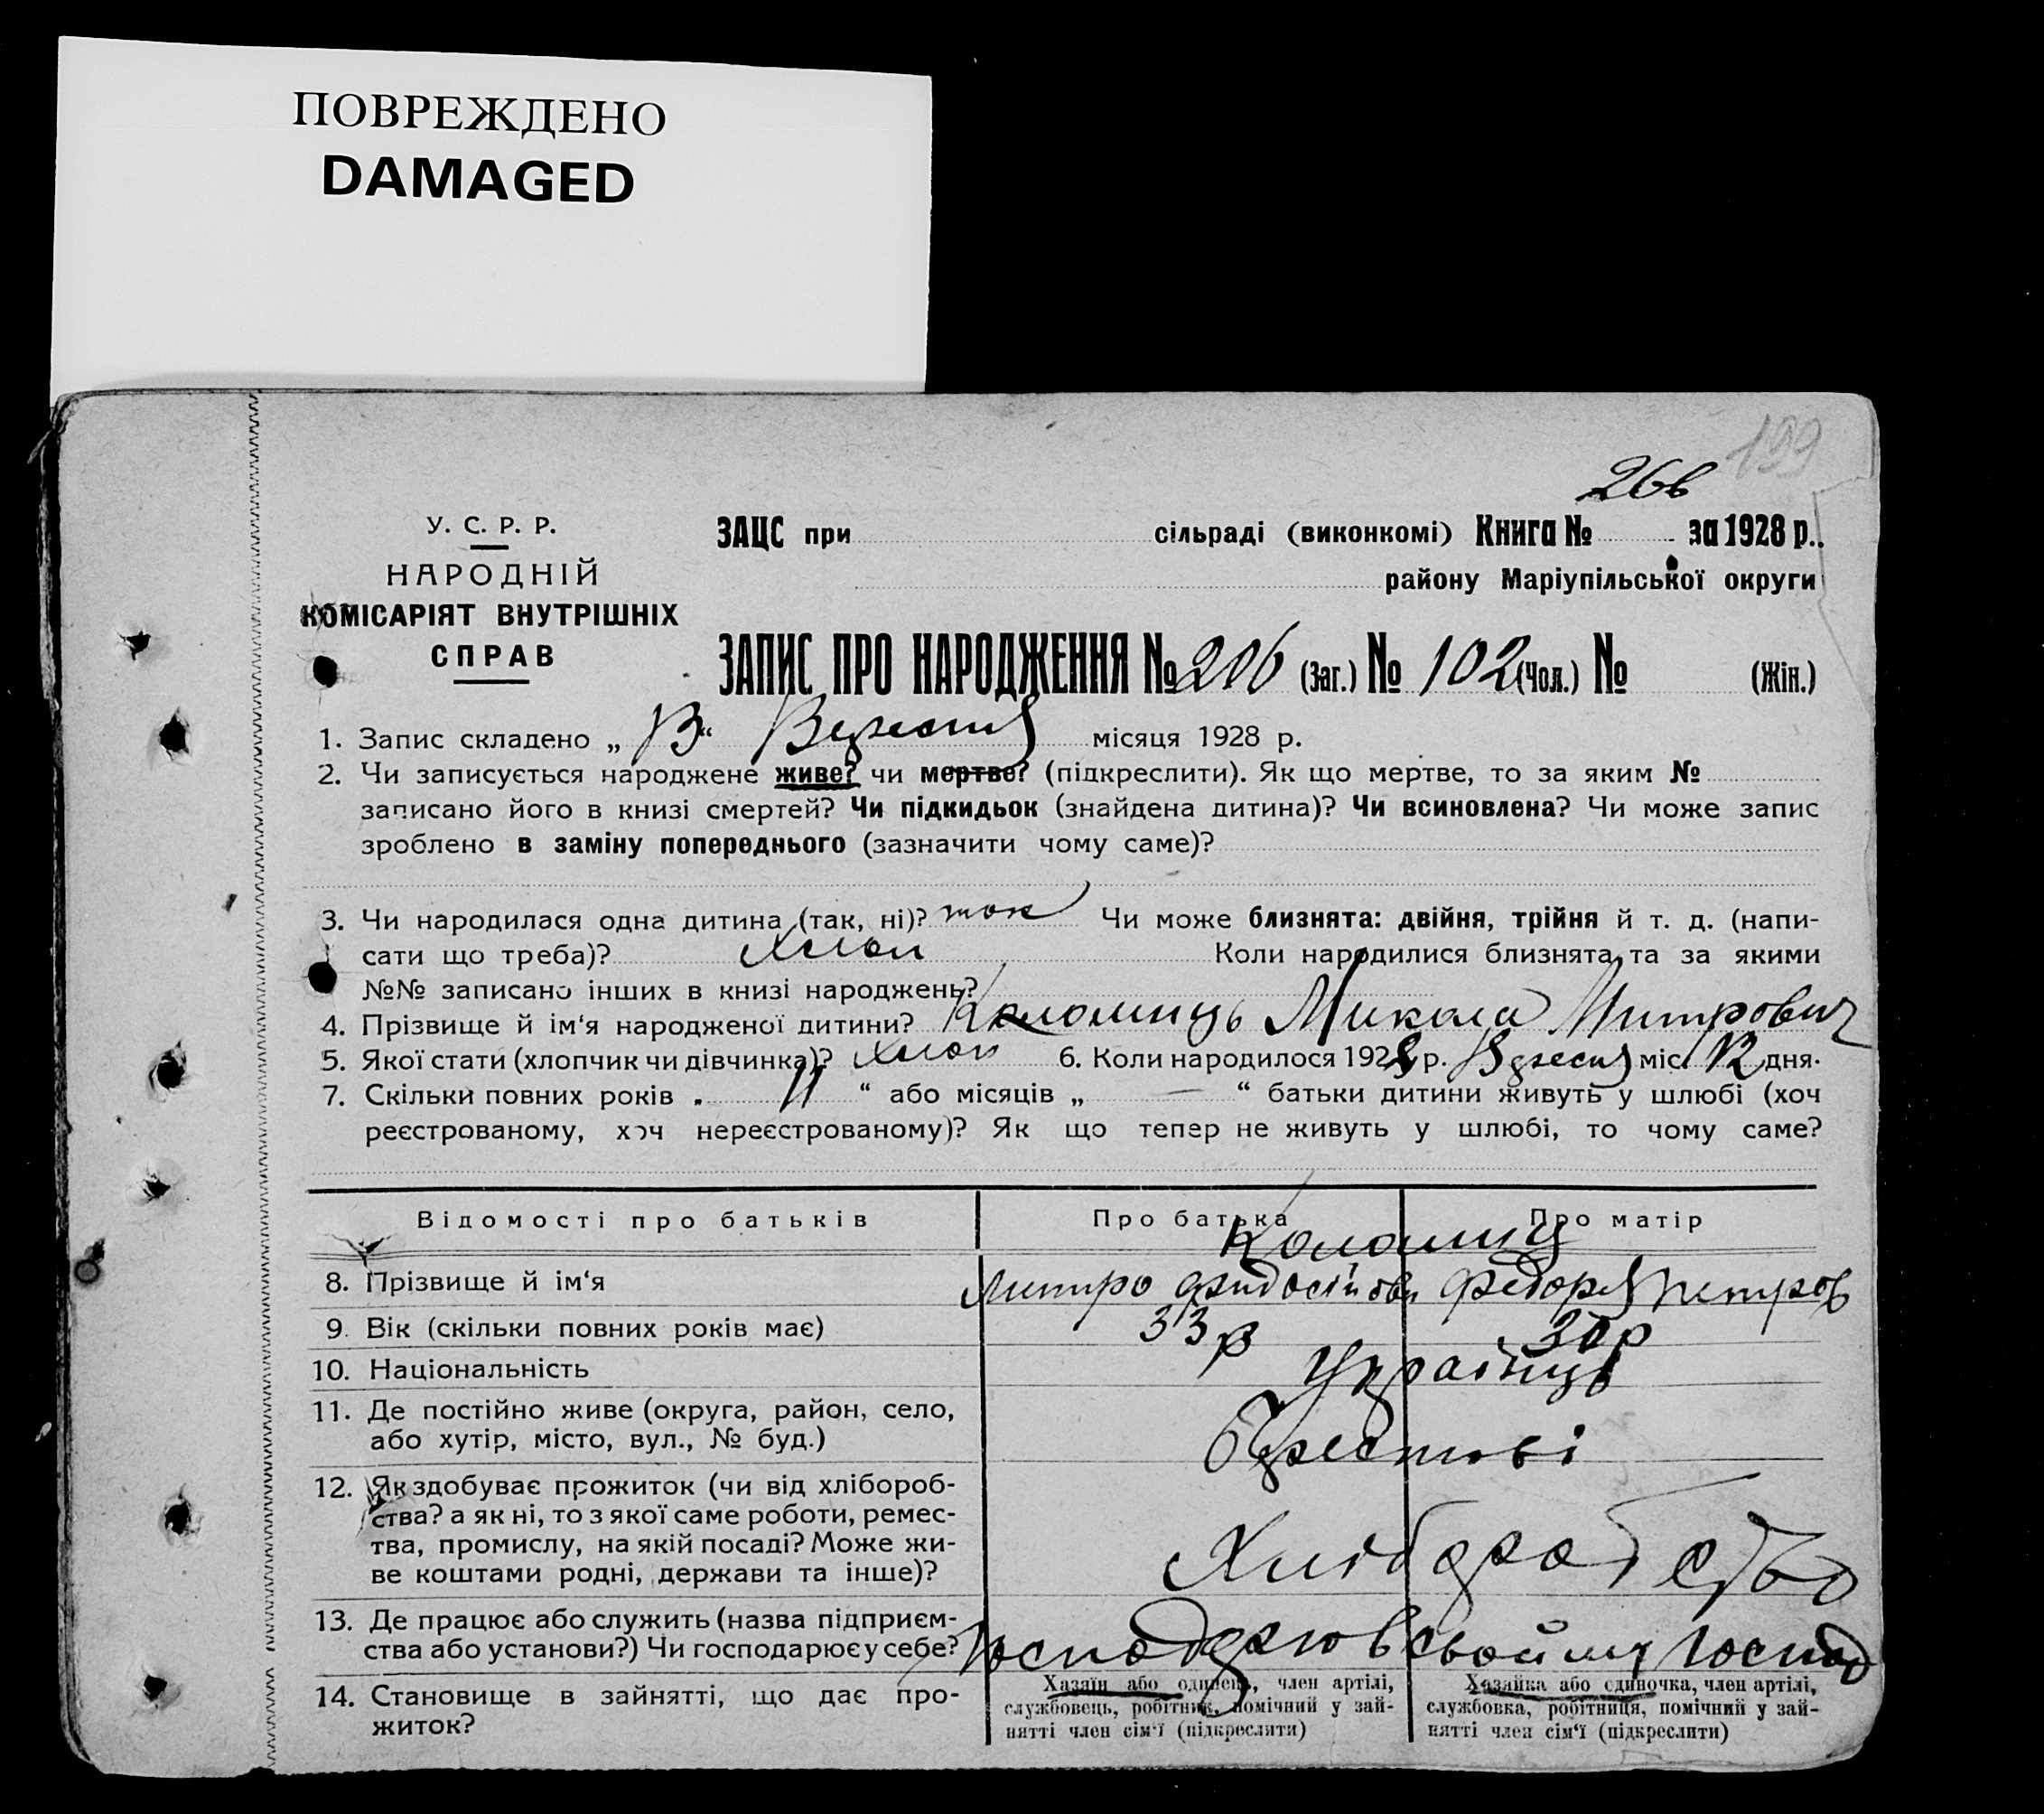 ПОВРЕЖДЕНО
DAMAGED
199
26в
У. С. Р. Р.
НАРОДНІЙ
КОМІСАРІЯТ ВНУТРІШНІХ
СПРАВ
ЗАЦС при сільраді (виконкомі) Книга № за 1928 р.
району Маріупільської округи
ЗАПИС ПРО НАРОДЖЕННЯ № 206 (Заг.) № 102 (Чол.) № (Жін.)
1. Запис складено „ “ Вересня місяця 1928 р.
2. Чи записується народжене живе? чи мертве? (підкреслити). Як що мертве, то за яким №
записано його в книзі смертей? Чи підкидьок (знайдена дитина)? Чи всиновлена? Чи може запис
зроблено в заміну попереднього (зазначити чому саме)?
3. Чи народилася одна дитина (так, ні)? так Чи може близнята: двійня, трійня й т. д. (напи-
сати що треба)? Хлоп Коли народилися близнята та за якими
№№ записано інших в книзі народжень?
4. Прізвище й ім‘я народженої дитини? Коломиць Микола Митрович
5. Якої стати (хлопчик чи дівчинка)? Хлоп 6. Коли народилося 1928 р. Вересня міс. 12 дня.
7. Скільки повних років „ 11 “ або місяців „ — “ батьки дитини живуть у шлюбі (хоч
реєстрованому, хоч нереєстрованому)? Як що тепер не живуть у шлюбі, то чому саме?
Відомості про батьків Про батька Про матір
Коломиц
8. Прізвище й ім‘я Митро Федоря Петров
9. Вік (скільки повних років має) 33 р 30 р
10. Національність Українць
11. Де постійно живе (округа, район, село,
або хутір, місто, вул., № буд.) Берестові
12. Як здобуває прожиток (чи від хлібороб-
ства? а як ні, то з якої саме роботи, ремес-
тва, промислу, на якій посаді? Може жи-
ве коштами родні, держави та інше)? Хліборобство
13. Де працює або служить (назва підприєм-
ства або установи?) Чи господарює у себе? в свойму господ
14. Становище в зайнятті, що дає про-
житок?
Хазяїн або одинець, член артілі,
службовець, робітник, помічний у зай-
нятті член сім‘ї (підкреслити)
Хазяйка або одиночка, член артілі,
службовка, робітниця, помічний у зай-
нятті член сім‘ї (підкреслити)